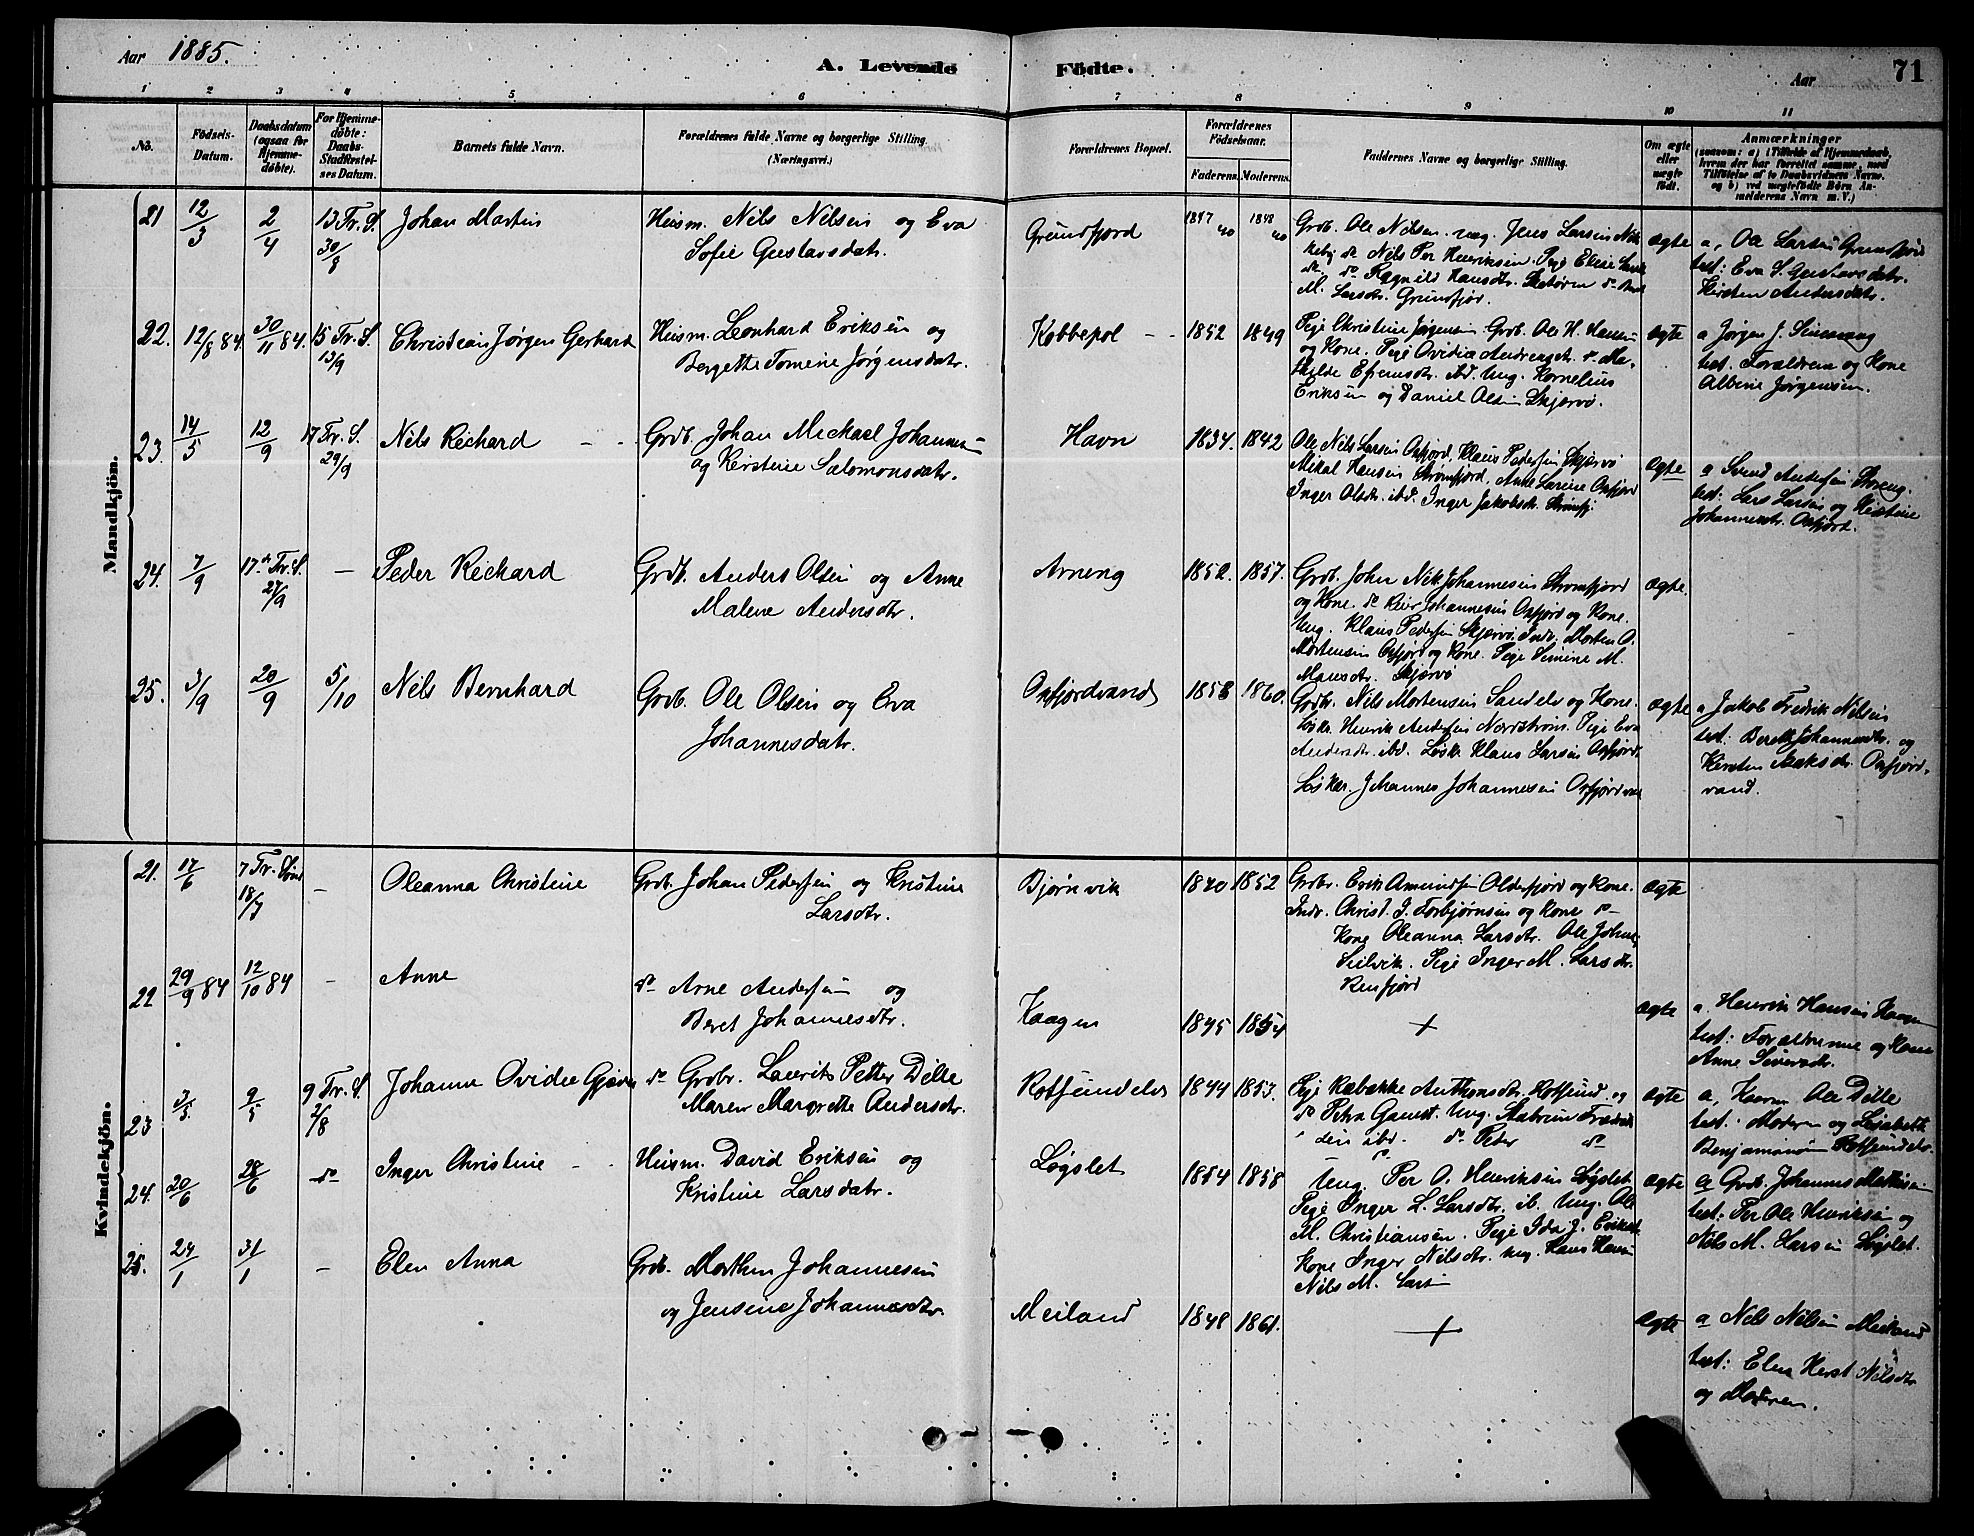 Aar 1885.
A. Levende Födte.
Aar
71
1 2 3 4 5 6 7 8 9 10 11
No.
Födsels-
Datum.
Daabsdatum
(ogsaa for
Hjemme-
døbte).
For Hjemme-
døbte:
Daabs-
Stadfæstel-
ses Datum.
Barnets fulde Navn.
Forældrenes fulde Navne og borgerlige Stilling.
(Næringsvei.)
Forældrenes Bopæl.
Forældrenes
Födselsaar.
Faderens. Moderens.
Faddernes Navne og borgerlige Stilling.
Om ægte
eller
uægte
födt.
Anmærkninger
(saasom: a) i Tilfælde af Hjemmedaab,
hvem der har forrettet samme, med
Tilföielse af to Daabsvidners Navne,
og b) ved uægtefödte Börn An-
melderens Navn m. V.)
Mandkjön.
21 12/3 2/4 13 Tr. S. 30/8 Johan Martin
Husm. Nils Nilsen og Eva
Sofie Gustavsdatr.
Grundfjord 1847 1848
40 40
Grdb. Ole Nilsen. ung. Jens Larsen
do Nils Per Henriksen. Pige
do Ragnild Hansdtr.
M. Larsdtr. Grundfjor.
ægte
a, Ole Larsen Grundfjord
test: Eva S. Gustavsdatr.
Kirsten Andersdatr.
22. 12/8 84. 30/11 84. 15 Tr. S. 13/9 Christian Jørgen Gerhard
Husm. Leonhard Eriksen og
Bergette Tomine Jørgensdatr.
Kobbepol - - 1852 1849
Pige Christine Jørgensen. Grdb. Ole H. Hansen
og Kone. Pige Ovidia do Ma-
thilde Efremsdtr. ibd. Ung. Kornelius
Eriksen og Daniel Olsen Skjærvø.
ægte
a Jørgen J.
test. Forældrene og Kone
Albine Jørgensen.
23. 14/5 12/9 17 Tr. S. 29/9 Nils Richard - -
Grdb. Johan Mickael Johannesen
og Kerstine Salomonsdatr.
Havn 1834. 1842
Ole Nils Larsen Oxfjord, Klaus Pedersen Skjærvø
Mikal Hansen Strømfjord, Anne Larine Oxfjord
Inger Olsdtr. ibd. Inger Jakobsdtr. Strømfj.
ægte
a Svend Andersen
test: Lars Larsen og Kirstine
Johannesdtr. Oxfjord.
24. 7/9 17de Tr. S. 27/9 — Peder Richard
Grdb. Anders Olsen og Anne
Malene Andersdtr.
Arneng 1852. 1857.
Grdb. Johan Nik Johannesen Strømfjord
og Kone. do Peder Johannesen Oxfjord og Kone.
Ung. Klaus Pedersen Skjærvø, Indr. Morten O.
Mortensen Oxfjord og Kone. Pige Simine M.
Mansdtr. Skjærvø
ægte.
25. 3/9 20/9 5/10 Nils Bernhard
Grdb. Ole Olsen og Eva
Johannesdatr.
Oxfjordvand 1858 1860.
Grdbr. Nils Mortensen Sandelv og Kone.
Løsk. Henrik Andersen Nordstrøm. Pige Eva
Andersdtr. ibd. Løsk. Klaus Larsen Oxfjord.
Løskar. Johannes Johannesen Oxfjordvan
ægte
a Jakob Fredrik Nilsen
test: Berelh Johannesdtr. og
Kirsten Isaksdtr. Oxfjord-
vand.
Kvindekjön.
21. 17/6 7 Tr. Sönd 18/7 — Oleanna Christine
Grdb. Johan Pedersen og Kristine
Larsdtr.
Bjørnvik 1820 1852
Grdbr. Erik Amundsen Olderfjord og Kone.
Indr. Christ. J. Torbjørnsen og Kone do -
Kone Oleanna Larsdtr. Ole Johns.
Pige Inger M. Larsdtr.
Renfjord
ægte
22 29/9 84 12/10 84 — Anne
do Arne Andersen og
Beret Johannesdtr.
Kaagen 1845 1854
+
ægte
a. Henrik Hansen Kaagen
test: Forældrene og Kone
Anne Siversdtr.
23 3/3 9/5 9 Tr. S. 2/8 Johanne Ovidie Gjæver
do Grdbr. Laurits Petter Dille
Maren Margrethe Andersdtr.
Rotsundelv 1844 1853.
Pige Rebekke Anthonsdtr. Rotsund. og
do Petra Gamst. Ung.
ibd. do Peter do
ægte
a, Ole Dille
test: Moderen og Lisabeth
Benjaminsen Rotsundelv.
24. 20/6 28/6 do Inger Christine - -
Husm. David Eriksen og
Kristine Larsdatr.
Løgslet 1854 1858
Ung. Per O. Henriksen Løgslet
Pige Inger L. Larsdtr. ib. Ung. Ole
M. Christiansen. Pige Ida J. Eriksd.
Kone Inger Nilsdtr. Ung. Hans Hansen
Nils M. Larsen
ægte
a Grdb. Johannes Mathisen
test: Per Ole Henriksen og
Nils M. Larsen Løgslet.
25. 24/1 31/1 — Elen Anna
Grdb. Morthen Johannesen
og Jensine Johannesdtr.
Meiland 1848 1861.
+
ægte
a Nils Nilsen Meiland
test: Elen Kerst Nilsdtr
og Moderen.